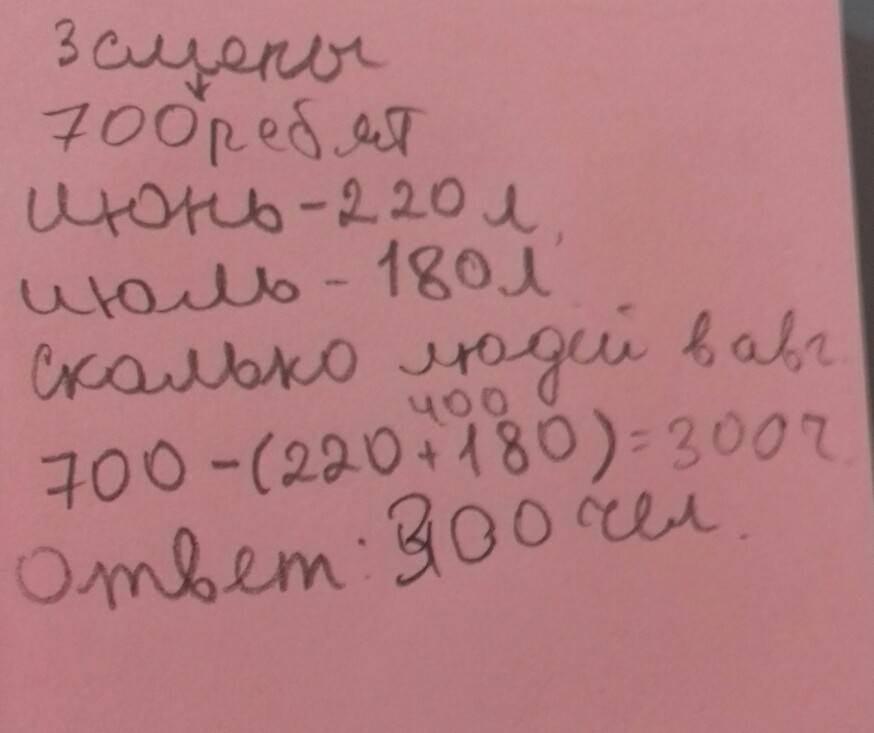 3 смены
700 ребят
июнь - 220 л.
июль - 180 л
сколько людей в авг.
400
700 - (220 + 180) = 300 ч.
Ответ: 300 чел.